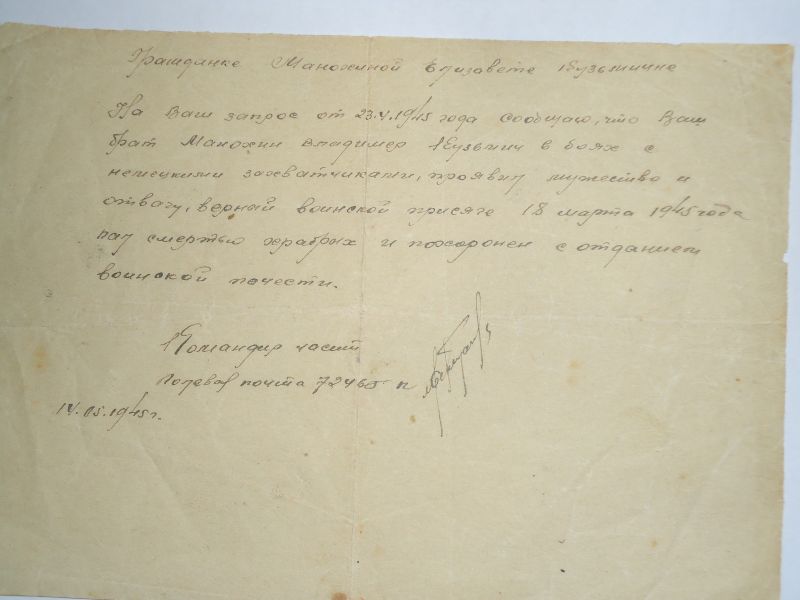 Гражданке Манохиной Елизавете Кузьминичне
На Ваш запрос от 23.V.1945 года сообщаю, что Ваш
брат Манохин Владимер Кузьмич в боях с
немецкими захватчиками, проявил мужество и
отвагу, верный воинской присяге 18 марта 1945 года
пал смертью храбрых и похоронен с отданием
воинской почести.
Командир части
Полевая почта 72465 п
14.05.1945 г.